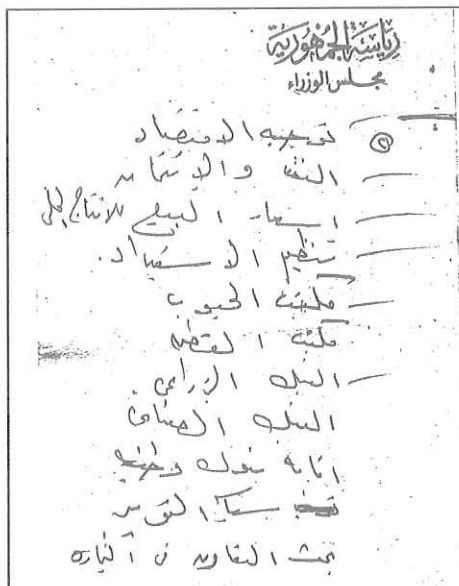 رياسة الجمهورية
مجلس الوزراء
② توجيه الاقتصاد
النقد والائتمان
اسعار البيع للانتاج المحلى
تنظيم الاستيراد.
مكتب الحبوب
مكتب القطن
البنك الزراعى
البنك الصناعى
بنوك وطنيه
التموين
بحث التعاون فى التجاره